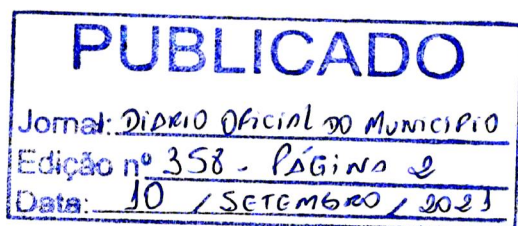 PUBLICADO
Jornal: DIÁRIO OFICIAL DO MUNICIPIO
Edição nº 358 - PÁGINA 2
Data: 10 / SETEMBRO / 2021